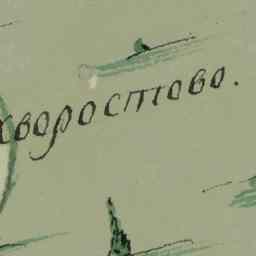 хворостово.